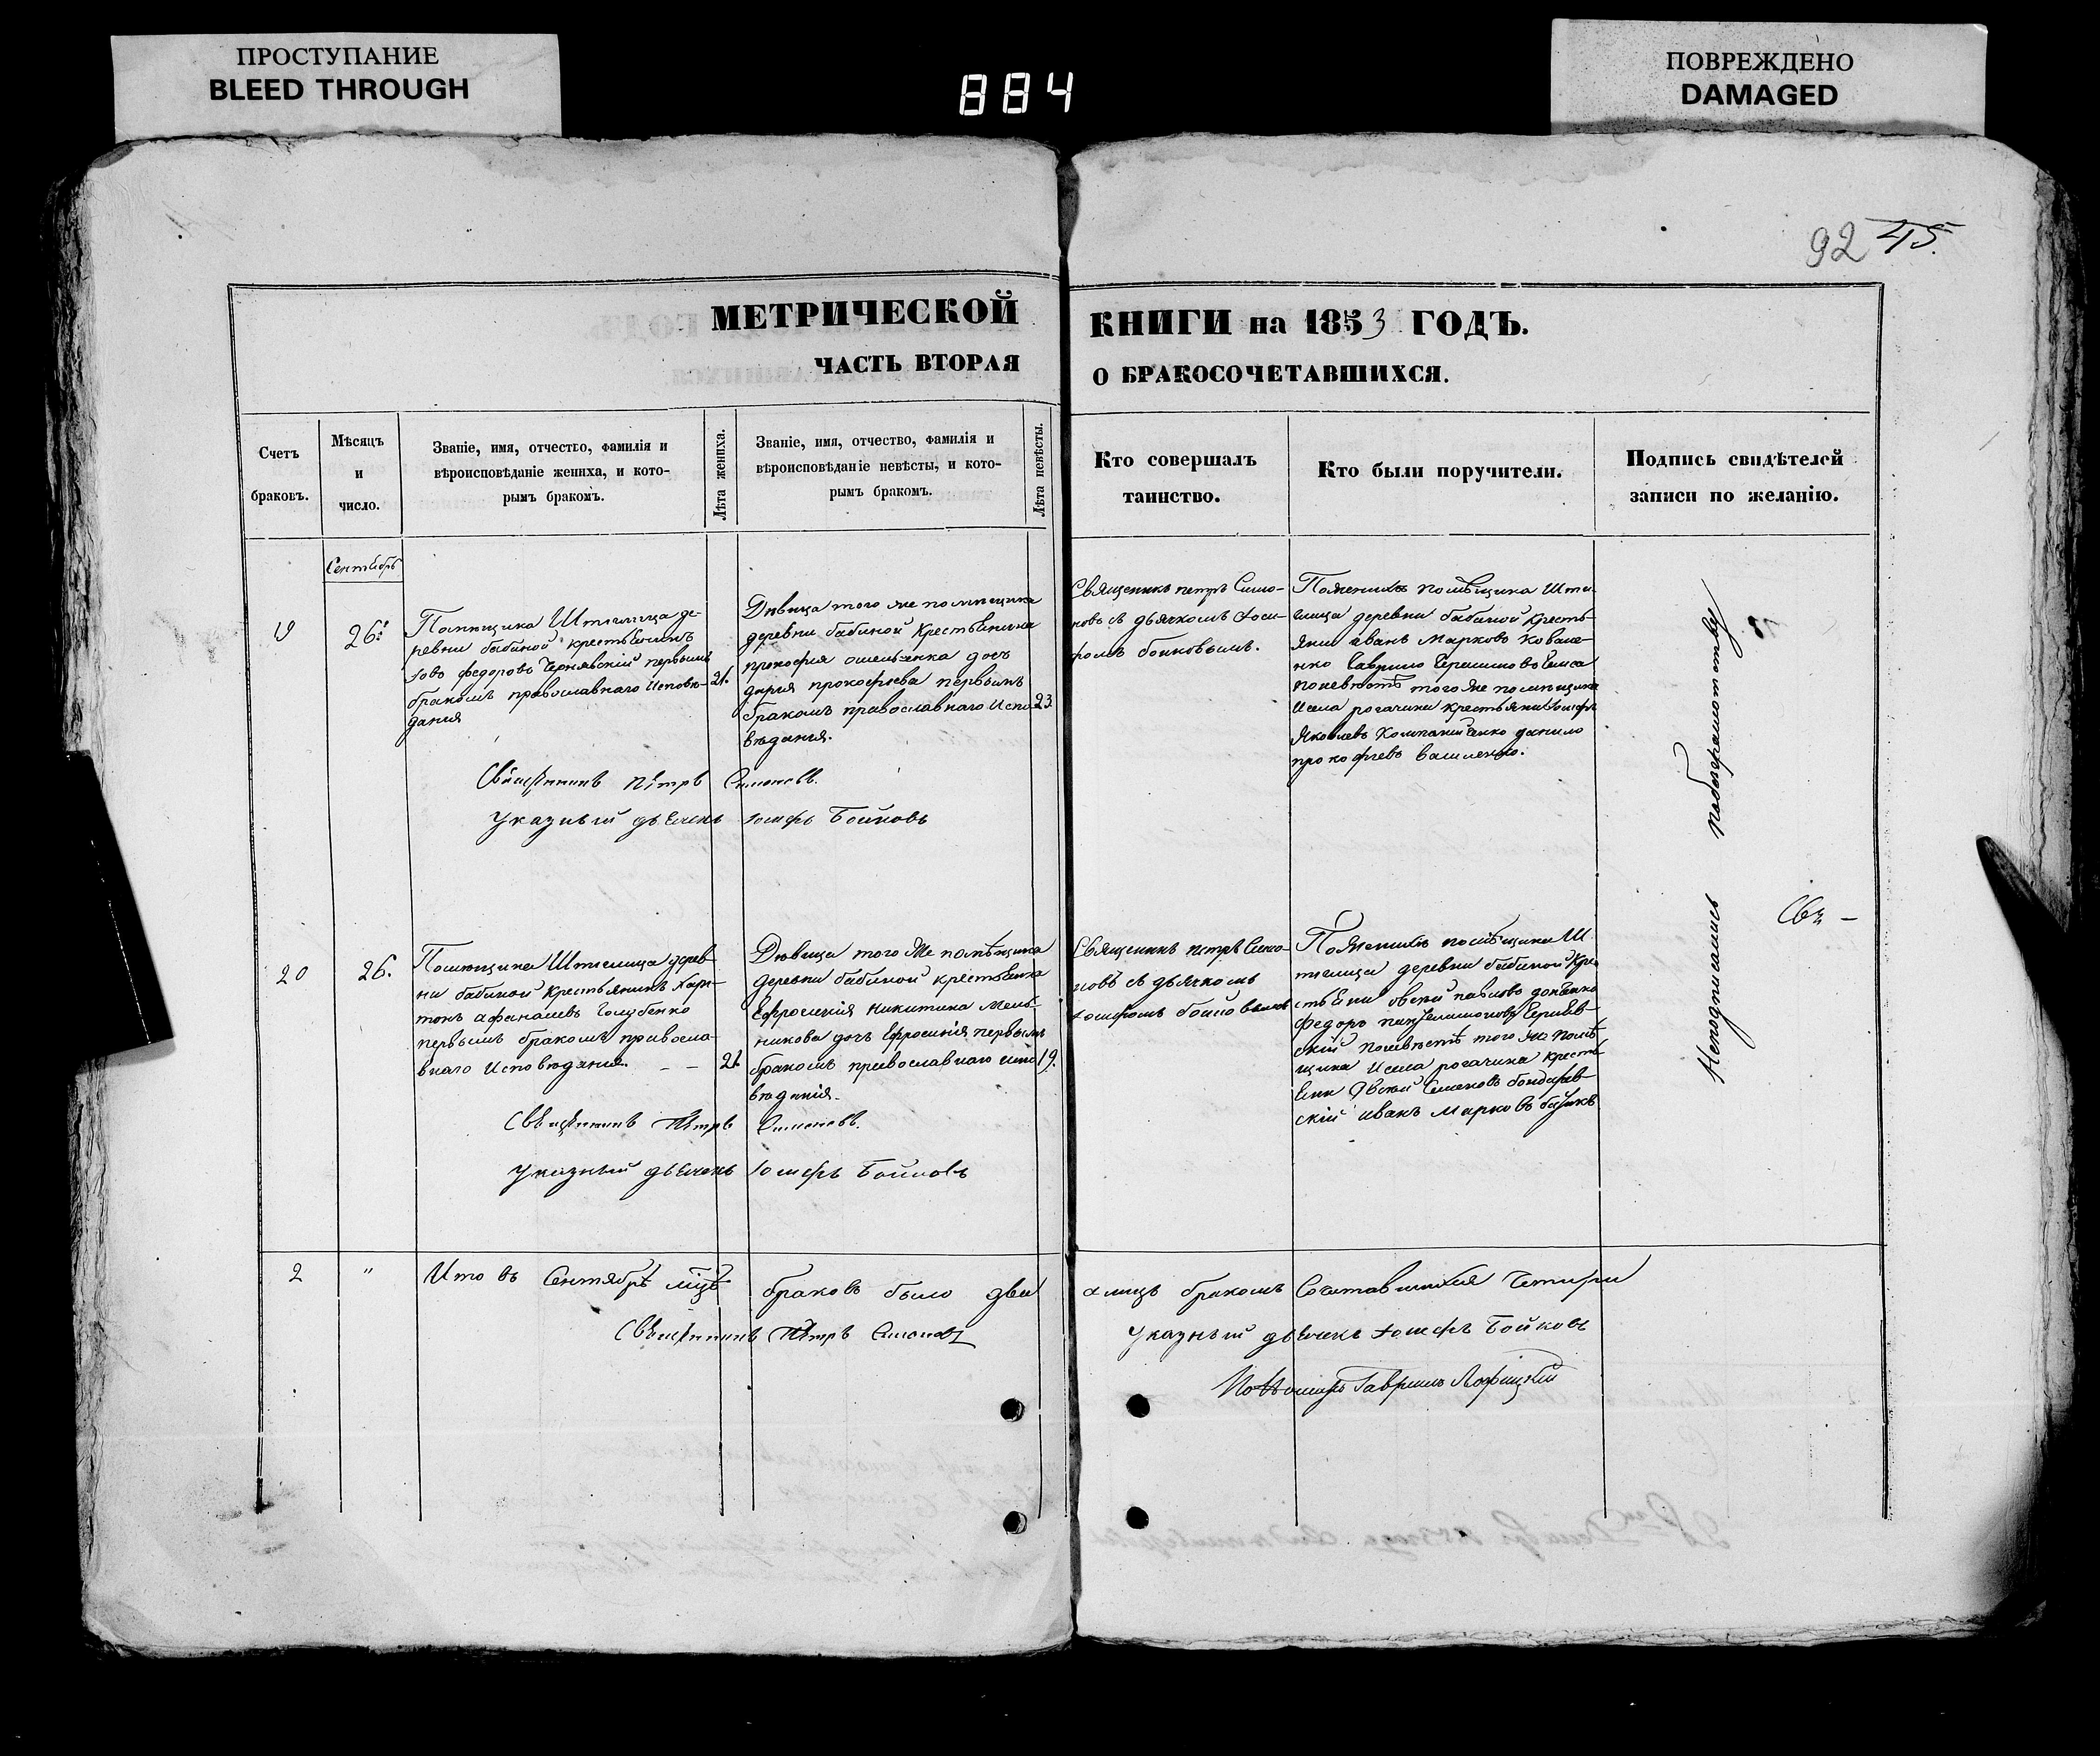 ПРОСТУПАНИЕ
BLEED THROUGH
884
ПОВРЕЖДЕНО
DAMAGED
92 45.
МЕТРИЧЕСКОЙ КНИГИ на 1853 ГОДЪ.
ЧАСТЬ ВТОРАЯ О БРАКОСОЧЕТАВШИХСЯ.
Счетъ
браковъ.
Мѣсяцъ
и
число.
Званіе, имя, отчество, фамилія и
вѣроисповѣданіе жениха, и кото-
рымъ бракомъ.
Лѣта жениха.
Званіе, имя, отчество, фамилія и
вѣроисповѣданіе невѣсты, и кото-
рымъ бракомъ.
Лѣта невѣсты.
Кто совершалъ
таинство.
Кто были поручители.
Подпись свидѣтелей
записи по желанію.
Сентябрь
19
26.
Помѣщика Штиглица де-
ревни бабиной крестьянинъ
федоровъ Чернявскій первымъ
бракомъ православнаго исповѣ-
данія
21.
Дѣвица того же помѣщика
деревни бабиной крестьянина
прокофия дочь
дарія прокофьева первымъ
бракомъ православнаго испо-
вѣданія.
23
Священикъ петръ Симо-
новъ съ дьячкомъ Іоси-
фомъ бойковымъ.
По женихѣ помѣщика Шти-
глица деревни бабиной кресть-
яни иванъ Марковъ Ковале-
нко Гаврило
по невѣстѣ того же помѣщика
села рогачика крестьяни
Яковлевъ Компаниченко данило
прокофіевъ василенко.
Священникъ Петръ Симоновъ.
Указный дьячекъ Іосифъ Бойковъ
20
26.
Помѣщика Штиглица дерев-
ни бабиной крестьянинъ Хари-
тонъ афанасіевъ Голубенко
первымъ бракомъ правосла-
внаго исповѣданія. – –
21.
Дѣвица того же помѣщика
деревни бабиной крестьянка
никитина мель-
никова дочь Ефросинія первымъ
бракомъ православнаго испо
вѣданія.
19.
Священикъ петръ Симо-
новъ съ дьячкомъ
іосифомъ бойковымъ
По женихѣ помѣщика Ш
тиглица деревни бабиной кре
стьяни павловъ
федоръ
скій по невѣстѣ того же помѣ
щика села рогачика кресть
яни Семеновъ бондарев-
скій иванъ марковъ
Священникъ Петръ Симоновъ.
Указный дьячекъ Іосифъ Бойковъ
Неподписались
Свя –
2 " Итого въ Сентябрѣ м-цѣ браковъ было два а лицъ бракомъ Сочетавшихся Четыри
Священникъ Петръ Симоновъ Указный дьячекъ іосифъ Бойковъ
Пономарь Гавриилъ